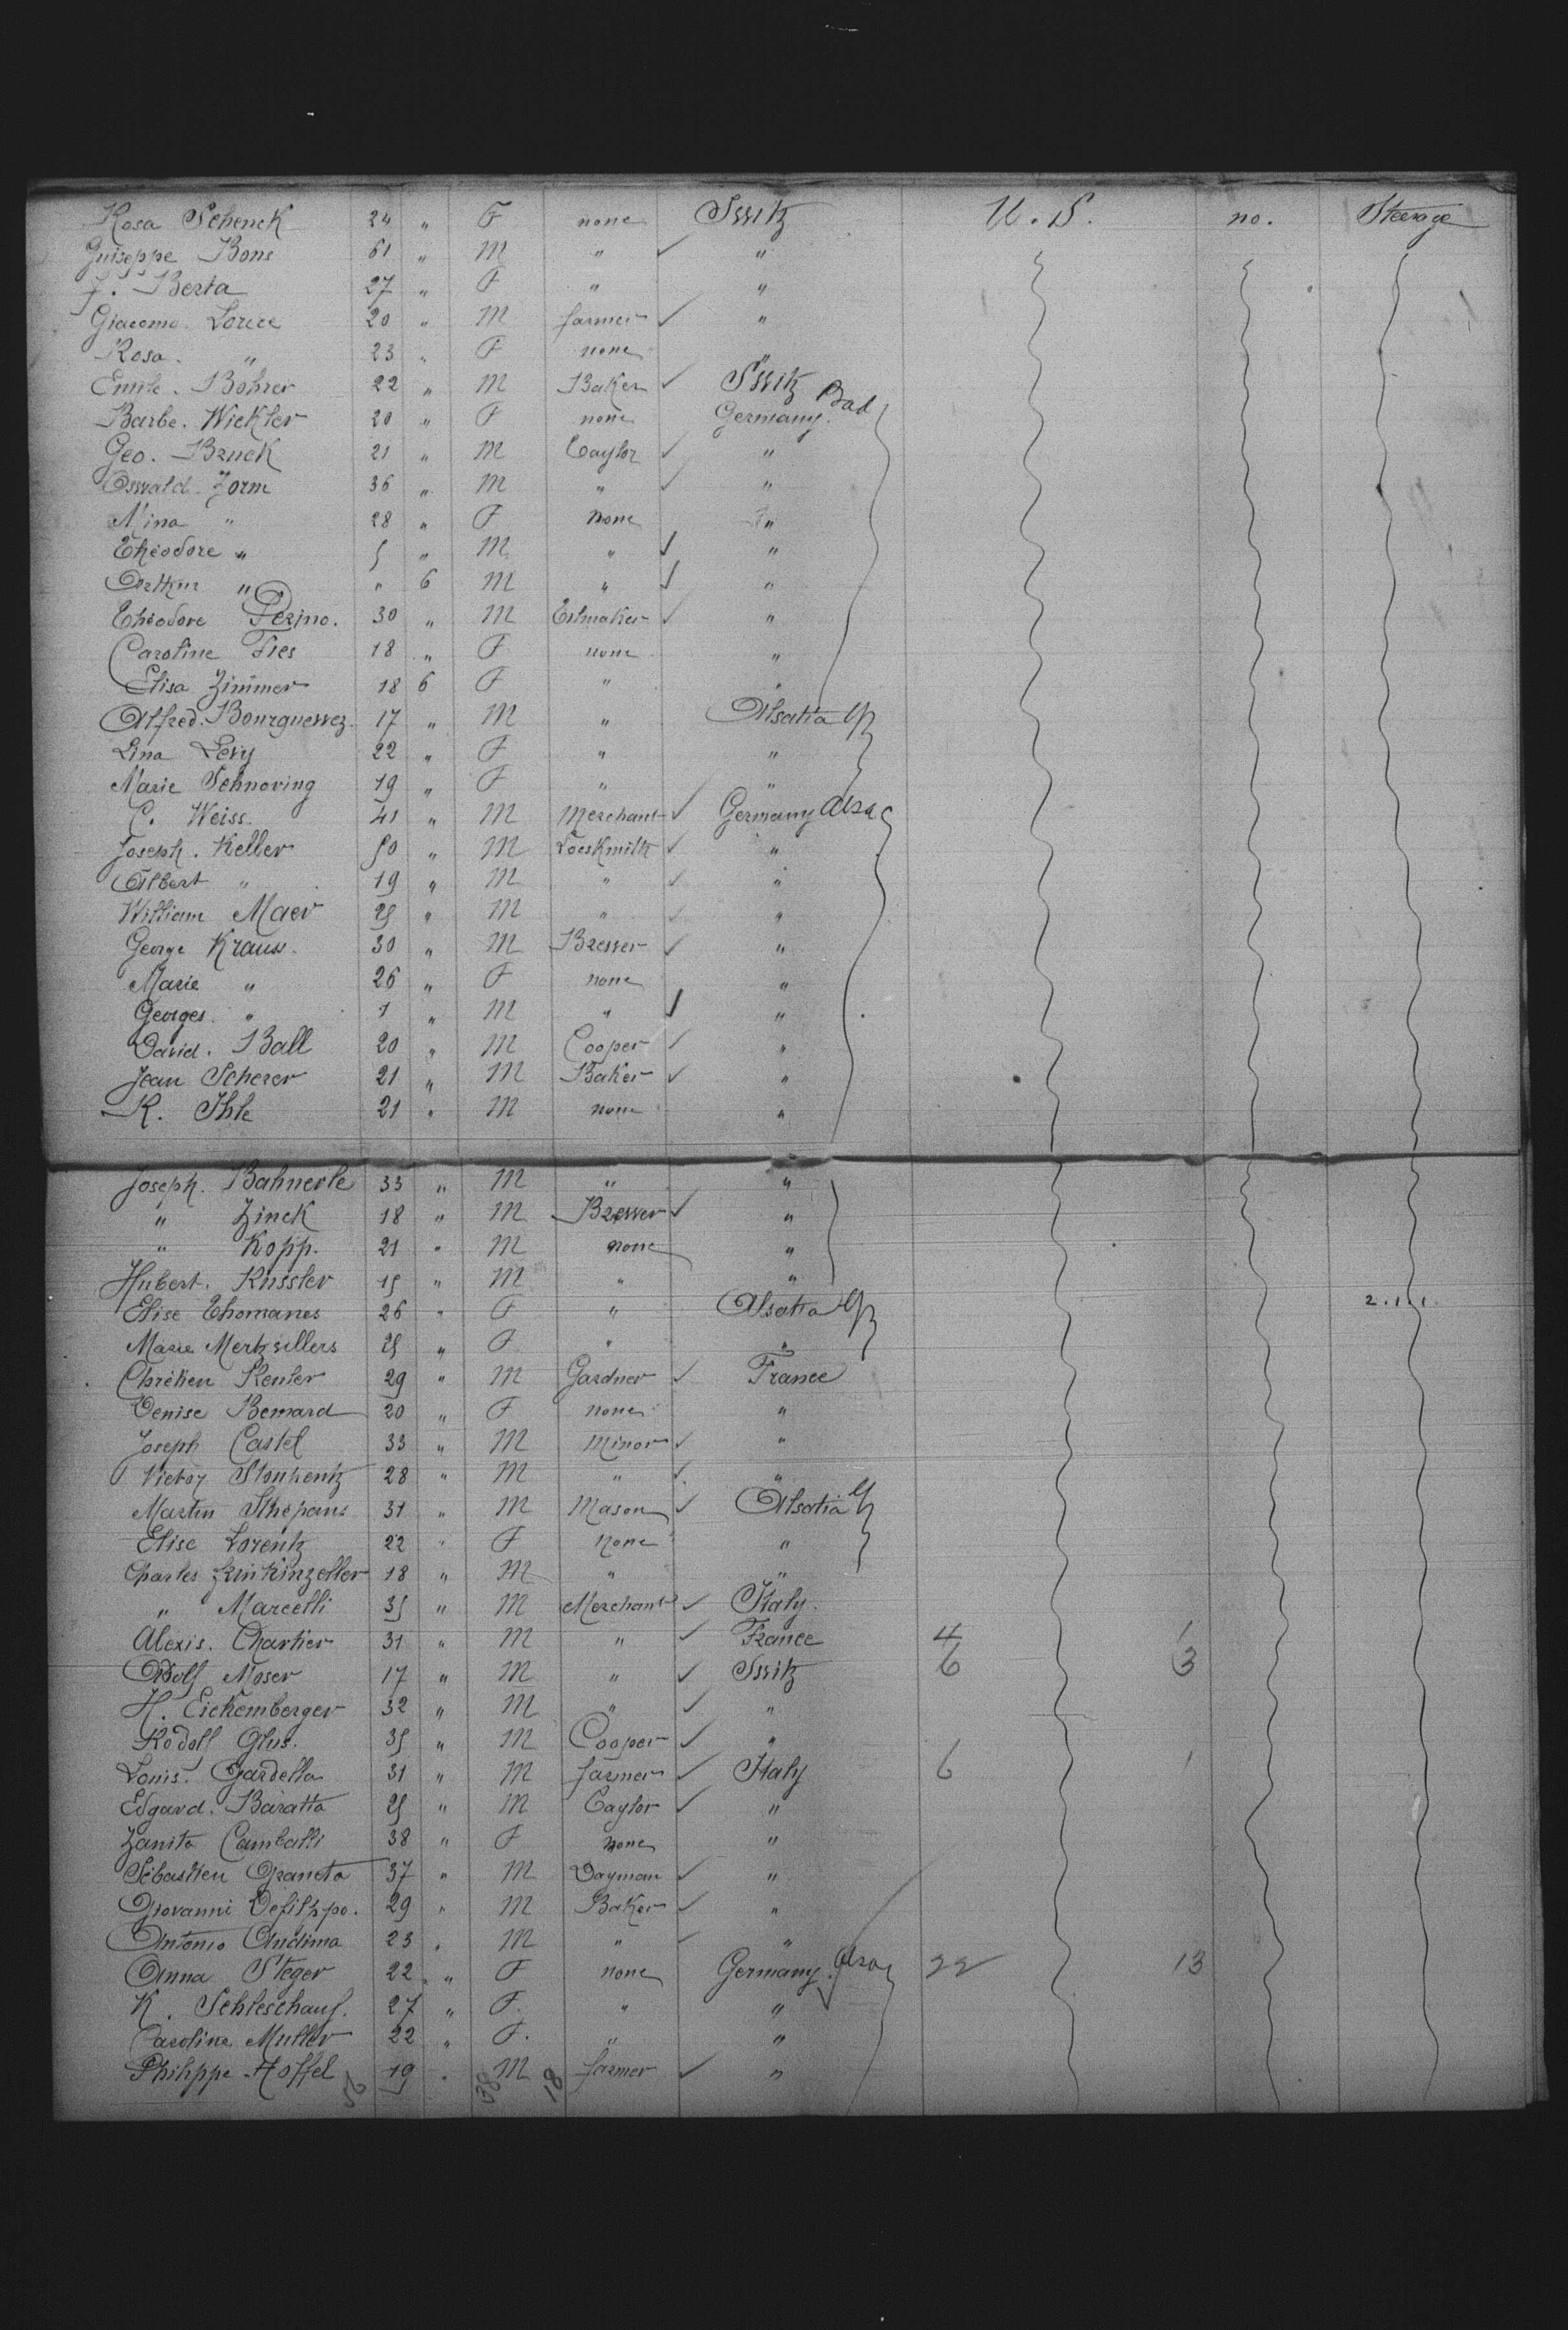 Rosa Schenck 24 " F none Switz U. S. no. Steerage
Guiseppe Bons 61 " M " "
J. Berta 27 " F " "
Giacomo Lorice 20 " M farmer "
Rosa " 23 " F none "
Emile Bohrer 22 " M Baker Switz
Barbe. Wickler 20 " F none Germany. Bad
Geo. Bruck 21 " M Taylor "
Oswald Zorm 36 " M " "
Mina " 28 " F none "
Théodore " 5 " M " "
Arthur " " 6 M " "
Théodore Perino. 30 " M "
Caroline Fies 18 " F none "
Elisa Zimmer 18 6 F " "
Alfred. 17 " M " Alsatia
Lina Levy 22 " F " "
Marie Schnoring 19 " F " "
C. Weiss. 41 " M Merchant Germany Alsac
Joseph. Keller 50 " M Locksmith "
Albert " 19 " M " "
William Maer 25 " M " "
George Krauss. 30 " M Brewer "
Marie " 26 " F none "
Georges " 1 " M " "
David. Ball 20 " M Cooper "
Jean Scherer 21 " M Baker "
K. Ihle 21 " M none "
Joseph. Bahnerle 33 " M " "
" Zinck 18 " M Brewer "
" Kopp. 21 " M none "
Hubert. Kussler 15 " M " "
Elise Thomanes 26 " F " Alsatia 2.1.1.
Marie Mertzvillers 25 " F " "
Chrétien Kenler 29 " M Gardner France
Denise Bernard 20 " F none "
Joseph Castel 33 " M Minor "
Victor 28 " M " "
Martin Sthepans 31 " M Mason Alsatia
Elise Lorentz 22 " F none "
Charles 18 " M " "
" Marcelli 35 " M Merchant Italy.
Alexis. Chartier 31 " M " France 4 1
Adolf Moser 17 " M " Switz 6 3
H. Eickemberger 32 " M " "
Rodolf Glus. 35 " M Cooper "
Louis. Gardella 31 " M farmer Italy 6 1
Edgard. Baratta 25 " M Taylor "
Zanita Camballi 38 " F none "
Sébastien Graneta 37 " M Dayman "
Giovanni 29 " M Baker "
Antonio Andima 23 " M " "
Anna Steger 22 " F none Germany. Alsac 22 13
K. Schleschauf. 27 " F. " "
Caroline Muller 22 " F. " "
Philippe Hoffel 19 " M farmer "
18